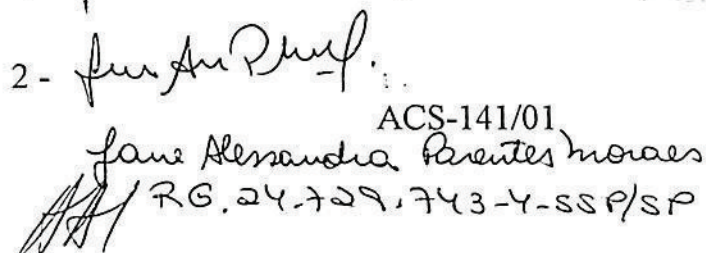 2 -
ACS-141/01
Jane Alessandra Parentes Moraes
RG. 24.729.743-4-SSP/SP